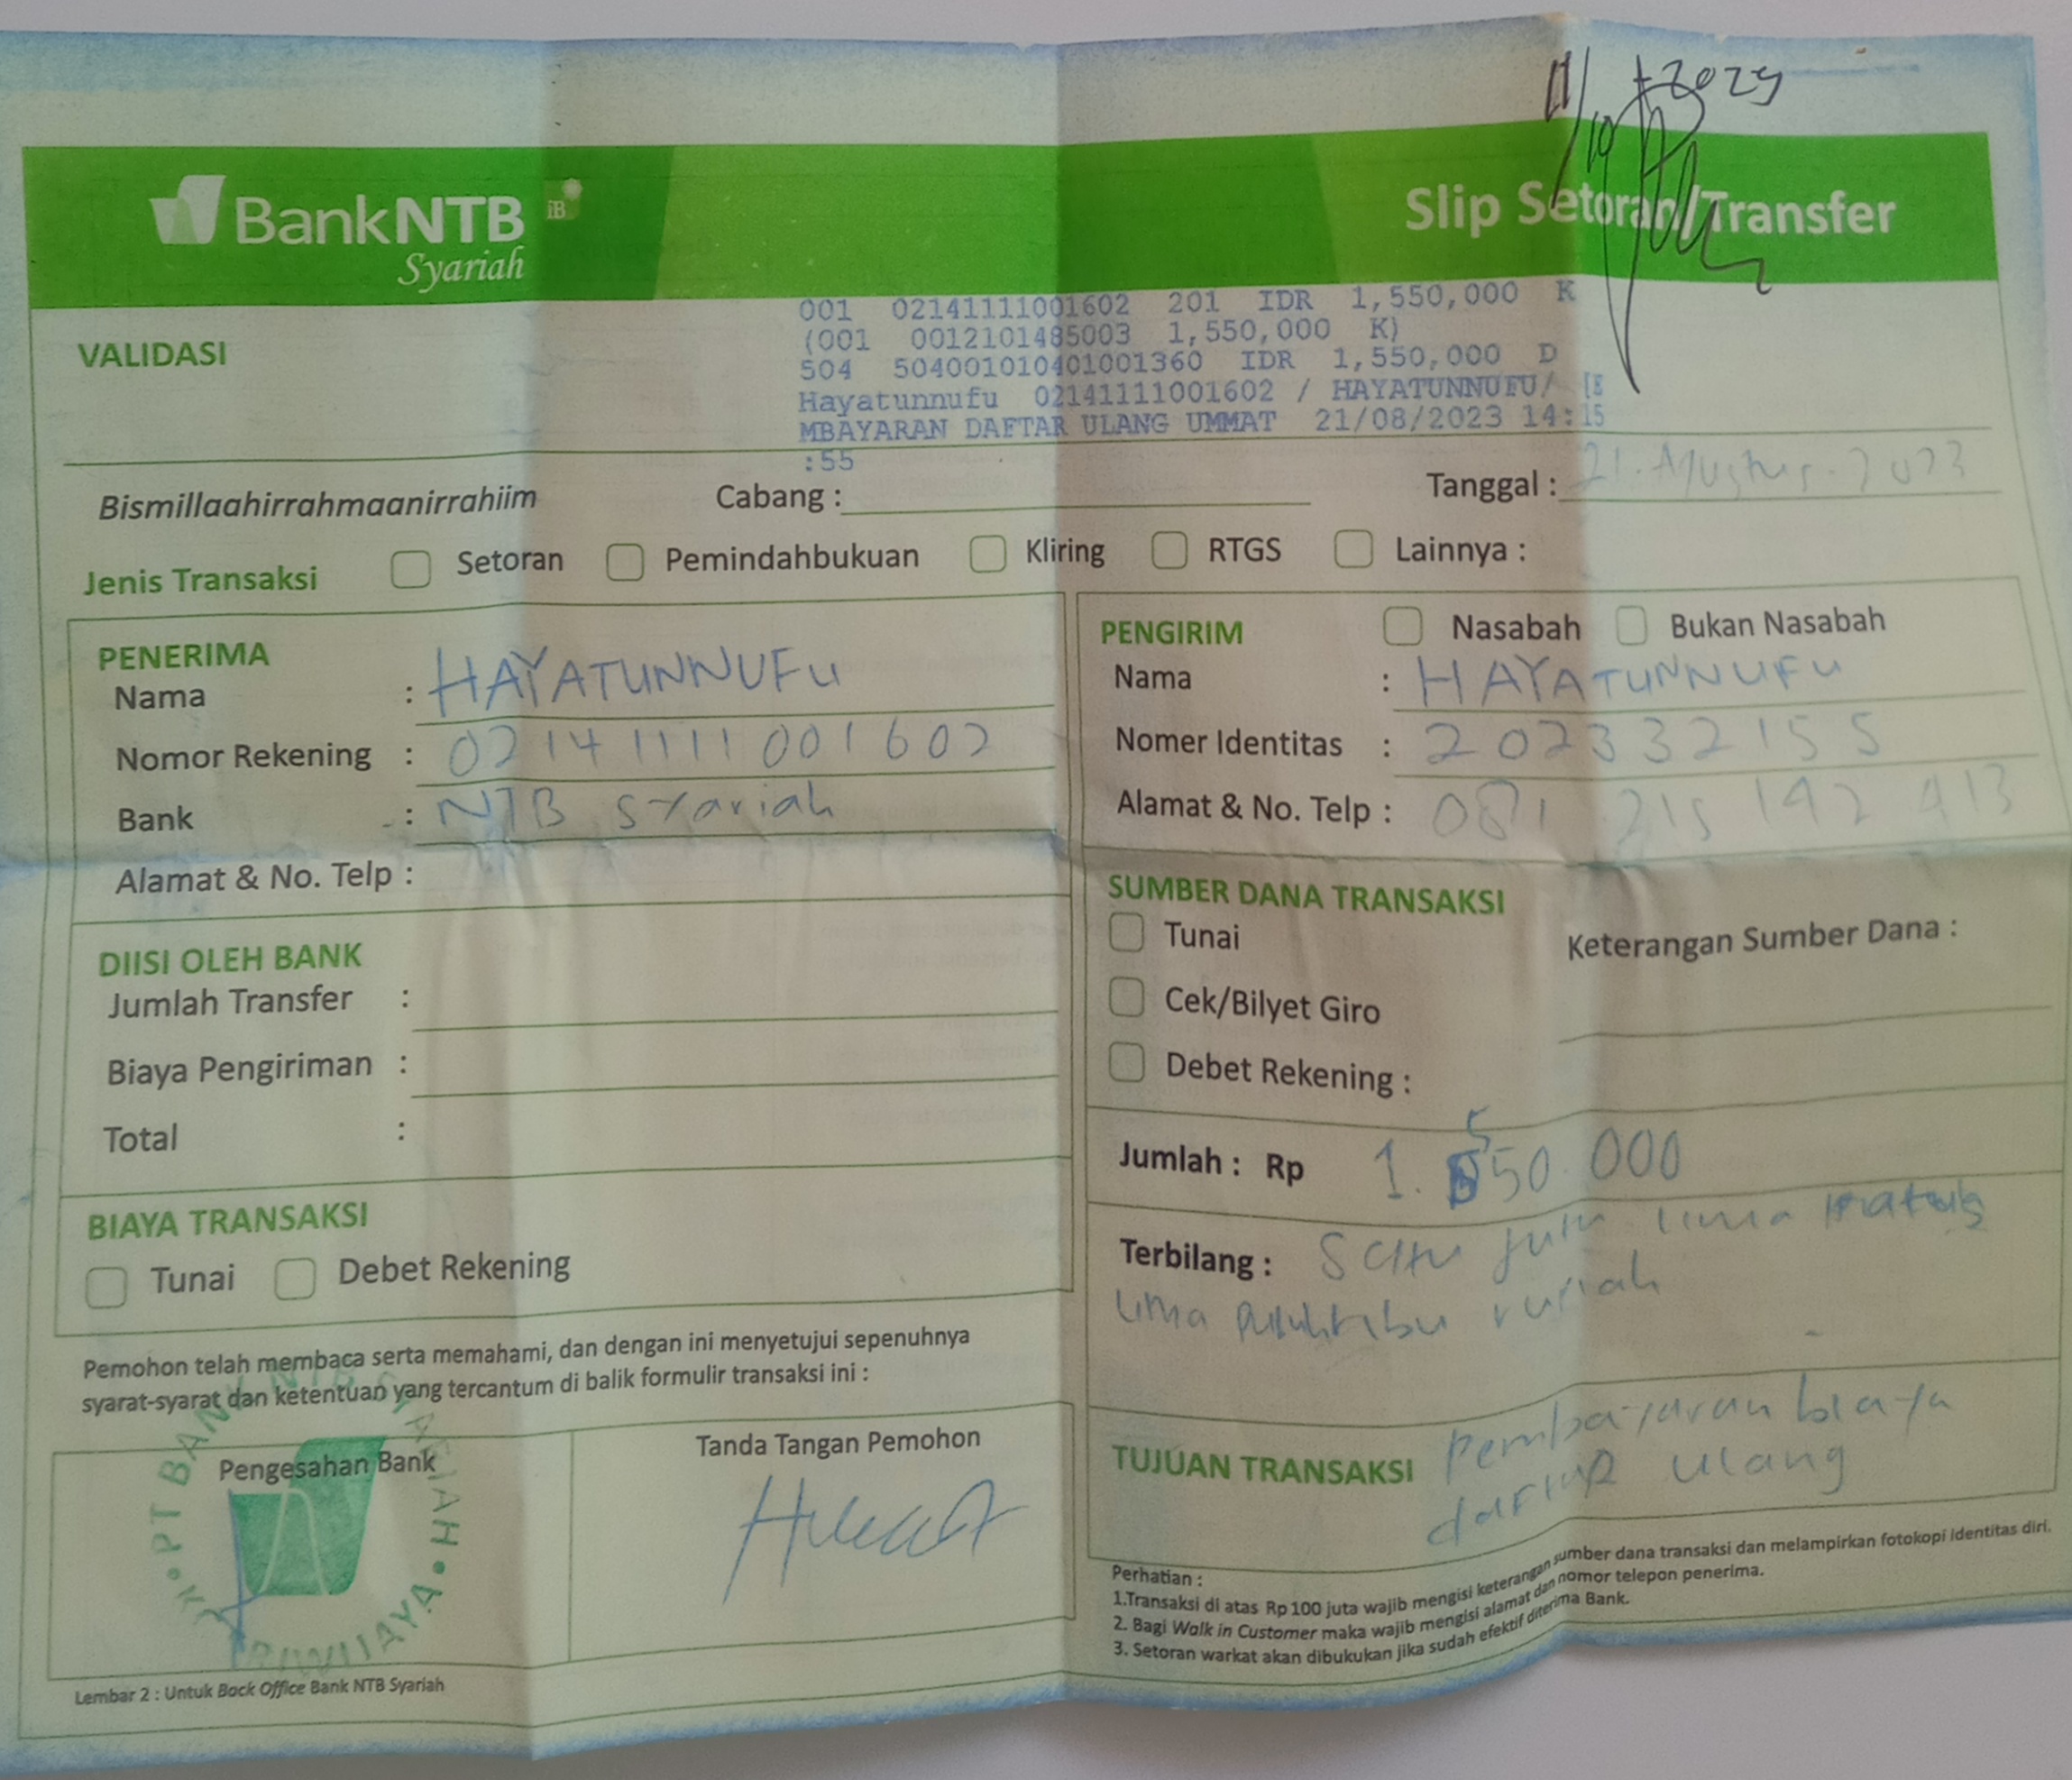 11/10 2025
BankNTB iB
Syariah
Slip Setoran/Transfer
VALIDASI
001 02141111001602 201 IDR 1,550,000 K
(001 0012101485003 1,550,000 K)
504 504001010401001360 IDR 1,550,000 D
Hayatunnufu 02141111001602 / HAYATUNNUFU/ [E
MBAYARAN DAFTAR ULANG UMMAT 21/08/2023 14:15
:55
Bismillaahirrahmaanirrahiim Cabang : Tanggal : 21. Agustus. 2023
Jenis Transaksi Setoran Pemindahbukuan Kliring RTGS Lainnya :
PENERIMA
Nama : HAYATUNNUFU
Nomor Rekening : 02141111001602
Bank : NTB Syariah
Alamat & No. Telp :
PENGIRIM Nasabah Bukan Nasabah
Nama : HAYATUNNUFU
Nomer Identitas : 202332155
Alamat & No. Telp : 081 215 142 413
DIISI OLEH BANK
Jumlah Transfer :
Biaya Pengiriman :
Total :
BIAYA TRANSAKSI
Tunai Debet Rekening
SUMBER DANA TRANSAKSI
Tunai Keterangan Sumber Dana :
Cek/Bilyet Giro
Debet Rekening :
Jumlah : Rp 1.550.000
Terbilang : Satu juta lima ratus
lima puluh ribu rupiah
Pemohon telah membaca serta memahami, dan dengan ini menyetujui sepenuhnya
syarat-syarat dan ketentuan yang tercantum di balik formulir transaksi ini :
Pengesahan Bank
PT BANK NTB SYARIAH
SRIWIJAYA
Tanda Tangan Pemohon
TUJUAN TRANSAKSI Pembayaran biaya
daftar ulang
Perhatian :
1.Transaksi di atas Rp100 juta wajib mengisi keterangan sumber dana transaksi dan melampirkan fotokopi identitas diri.
2. Bagi Walk in Customer maka wajib mengisi alamat dan nomor telepon penerima.
3. Setoran warkat akan dibukukan jika sudah efektif diterima Bank.
Lembar 2 : Untuk Back Office Bank NTB Syariah